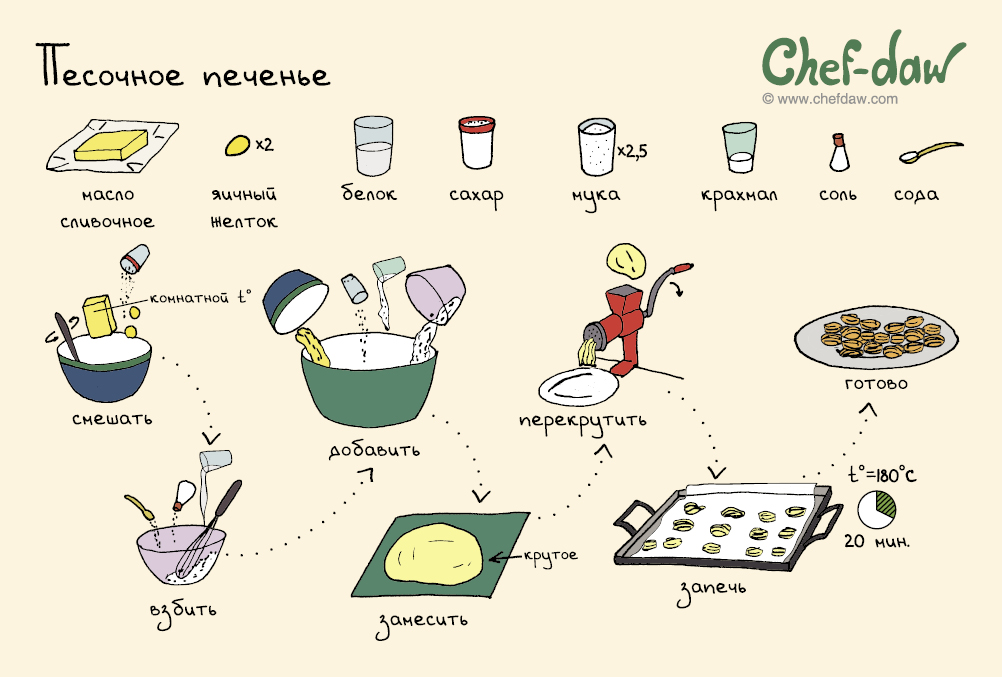 Песочное печенье
Chef-daw
© www.chefdaw.com
масло
сливочное
x2
яичный
желток
белок
сахар
x2,5
мука
крахмал
соль
сода
комнатной t°
смешать
добавить
перекрутить
готово
взбить
крутое
замесить
запечь
t°=180°C
20 мин.